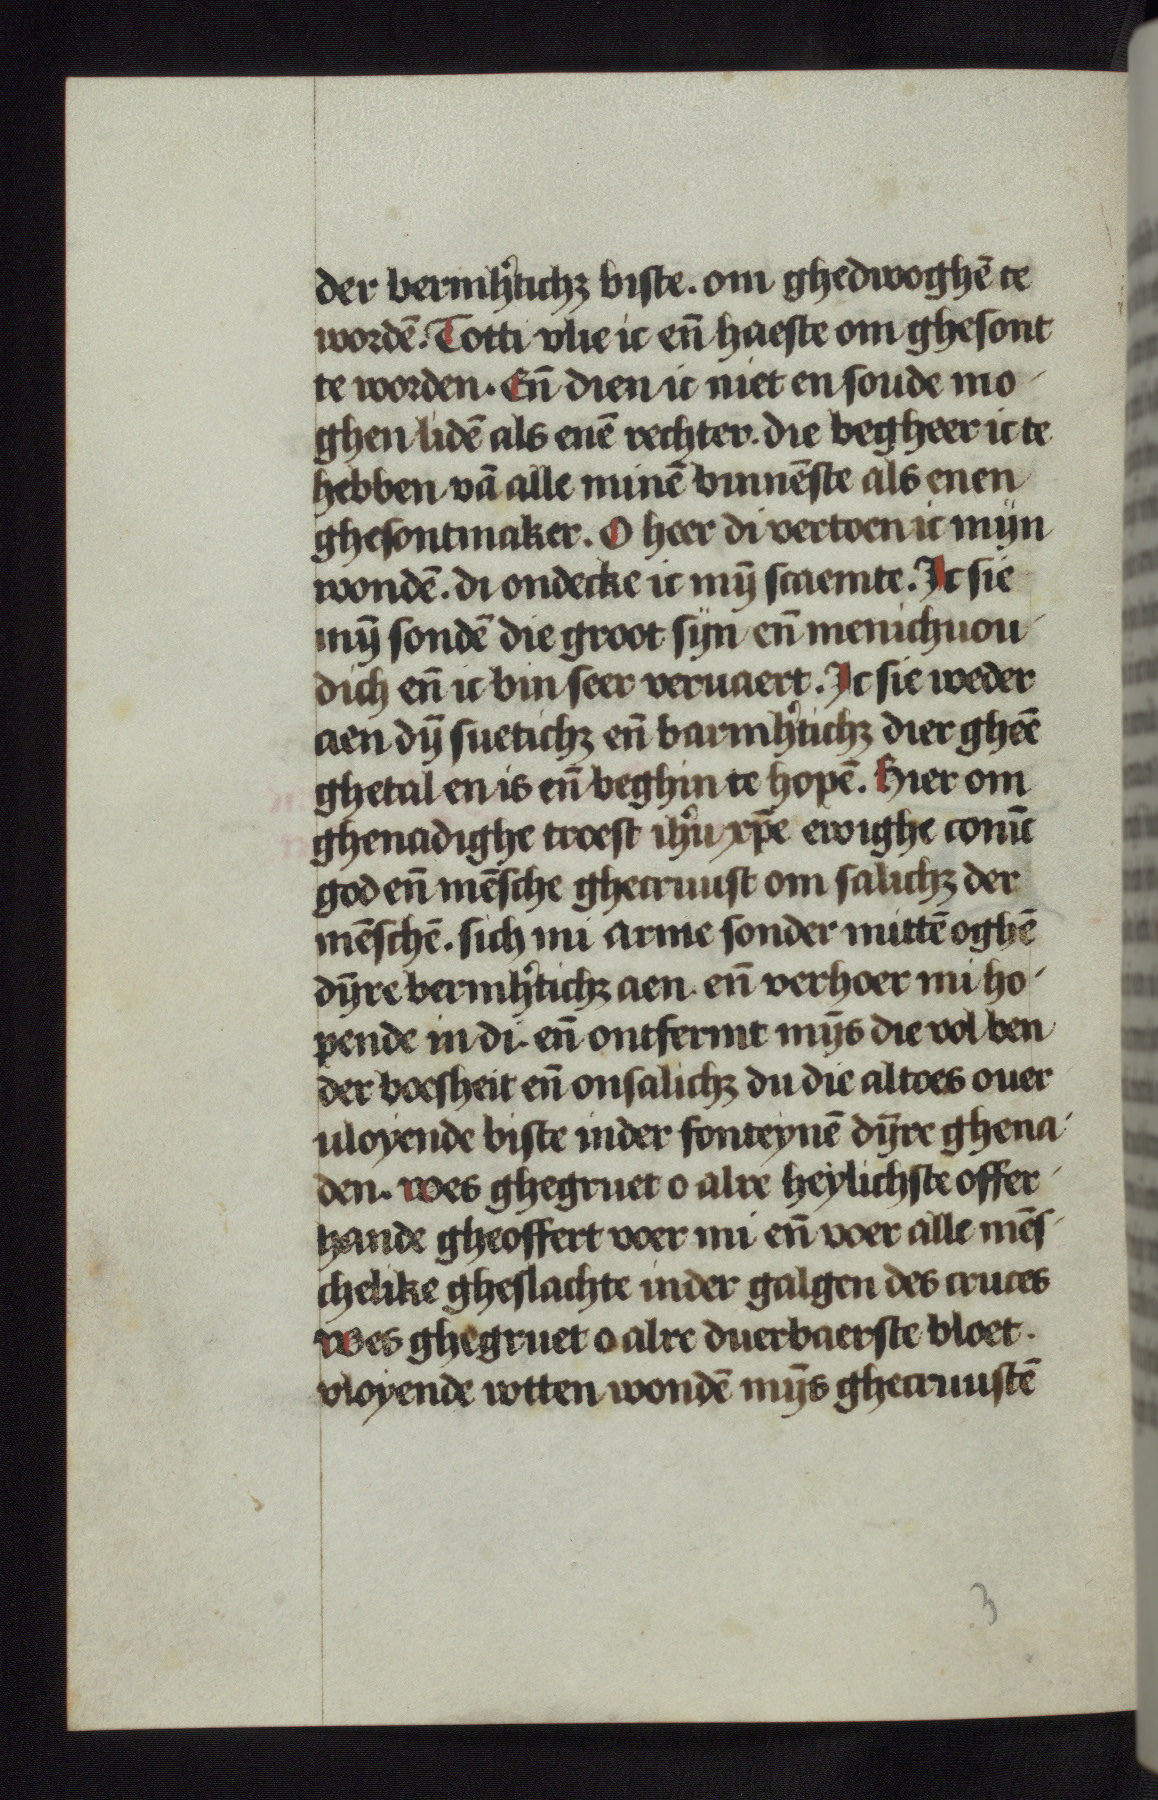 der bermh'tichꝫ biste. om ghedwoghē te
wordē. Totti vlie ic eñ haeste om ghesont
te worden. Eñ dien ic niet en soude mo
ghen lidē als enē rechter. die begheer ic te
hebben vā alle minē binnēste als enen
ghesontmaker. O heer di vertoen ic mijn
wondē. di ondecke ic mȳ scaemte. Ic sie
mȳ sondē die groot sijn eñ menichuou
dich eñ ic bin seer veruaert. Ic sie weder
aen dȳ suetichꝫ eñ barmh'tichꝫ dier gheē
ghetal en is eñ beghin te hopē. Hier om
ghenadighe troest ih'u xp̄e ewighe coninc
god eñ mēsche ghecruust om salichꝫ der
mēschē. sich mi arme sonder mittē oghē
dȳre bermh'tichꝫ aen. eñ verhoer mi ho
pende in di. eñ ontfermt mȳs die vol ben
der boesheit eñ onsalichꝫ du die altoes ouer
uloyende biste inder fonteynē dȳre ghena
den. wes ghegruet o alre heylichste offer
hande gheoffert voer mi eñ voer alle mēs
chelike gheslachte inder galgen des cruces
wes ghegruet o alre duerbaerste bloet.
vloyende wtten wondē mȳs ghecruustē
3